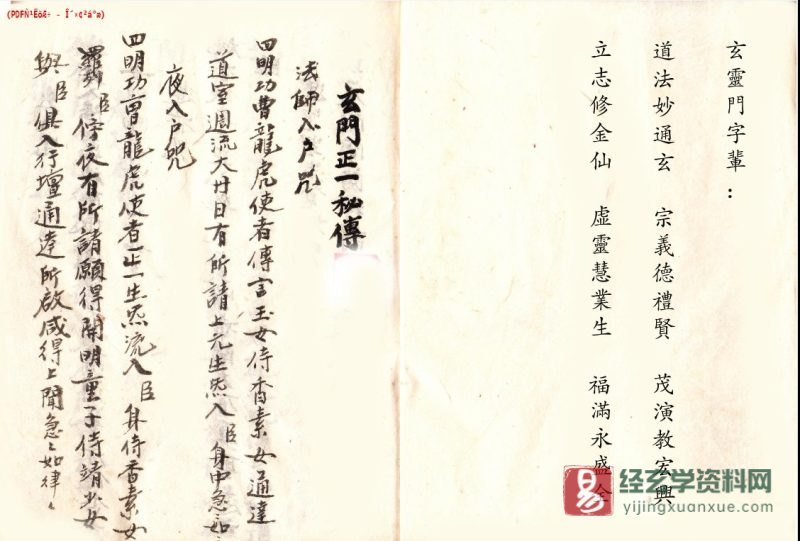 (PDFÑ¹Ëõ
玄靈門字輩：
道法妙通玄 宗義德禮賢 茂演教宏興
立志修金仙 虛靈慧業生 福滿永盛
玄門正一秘傳
法師入戶咒
四明功曹龍虎使者傳言玉女侍香素女通達
道室週流大廿日有所請上元生炁入臣身中急如
夜入戶咒
四明功曹龍虎使者正一生炁流入臣身侍香素女
臣傍夜有所請願得開明童子侍靖少女
與臣俱入行壇通達所啟咸得上聞急〻如律〻
易
经玄学资料网
yijingxuanxue.com